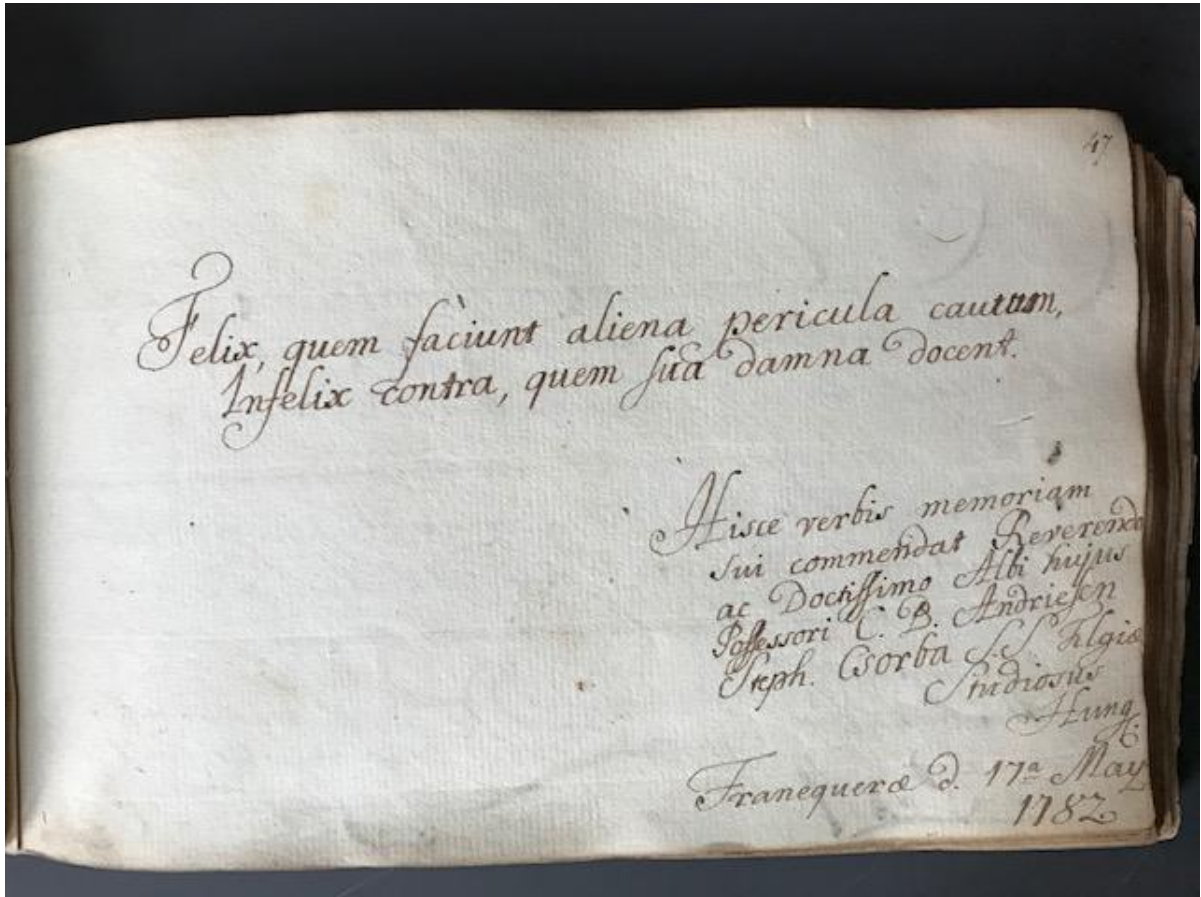 47
Felix, quem faciunt aliena pericula cautum,
Infelix contra, quem sua damna docent.
Hisce verbis memoriam
sui commendat Reverendo
ac Doctissimo Albi hujus
Possessori C. B. Andriesen
Steph. Csorba S.S. Thlgiæ
Studiosus
Hung.
Franequeræ d. 17a May
1782